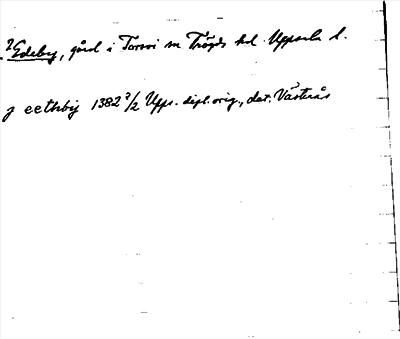 ? Edeby, gård i Torsvi sn Trögds hd. Uppsala l.
j eethby 1382 7/2 Upps. dipl. orig., dat. Västerås